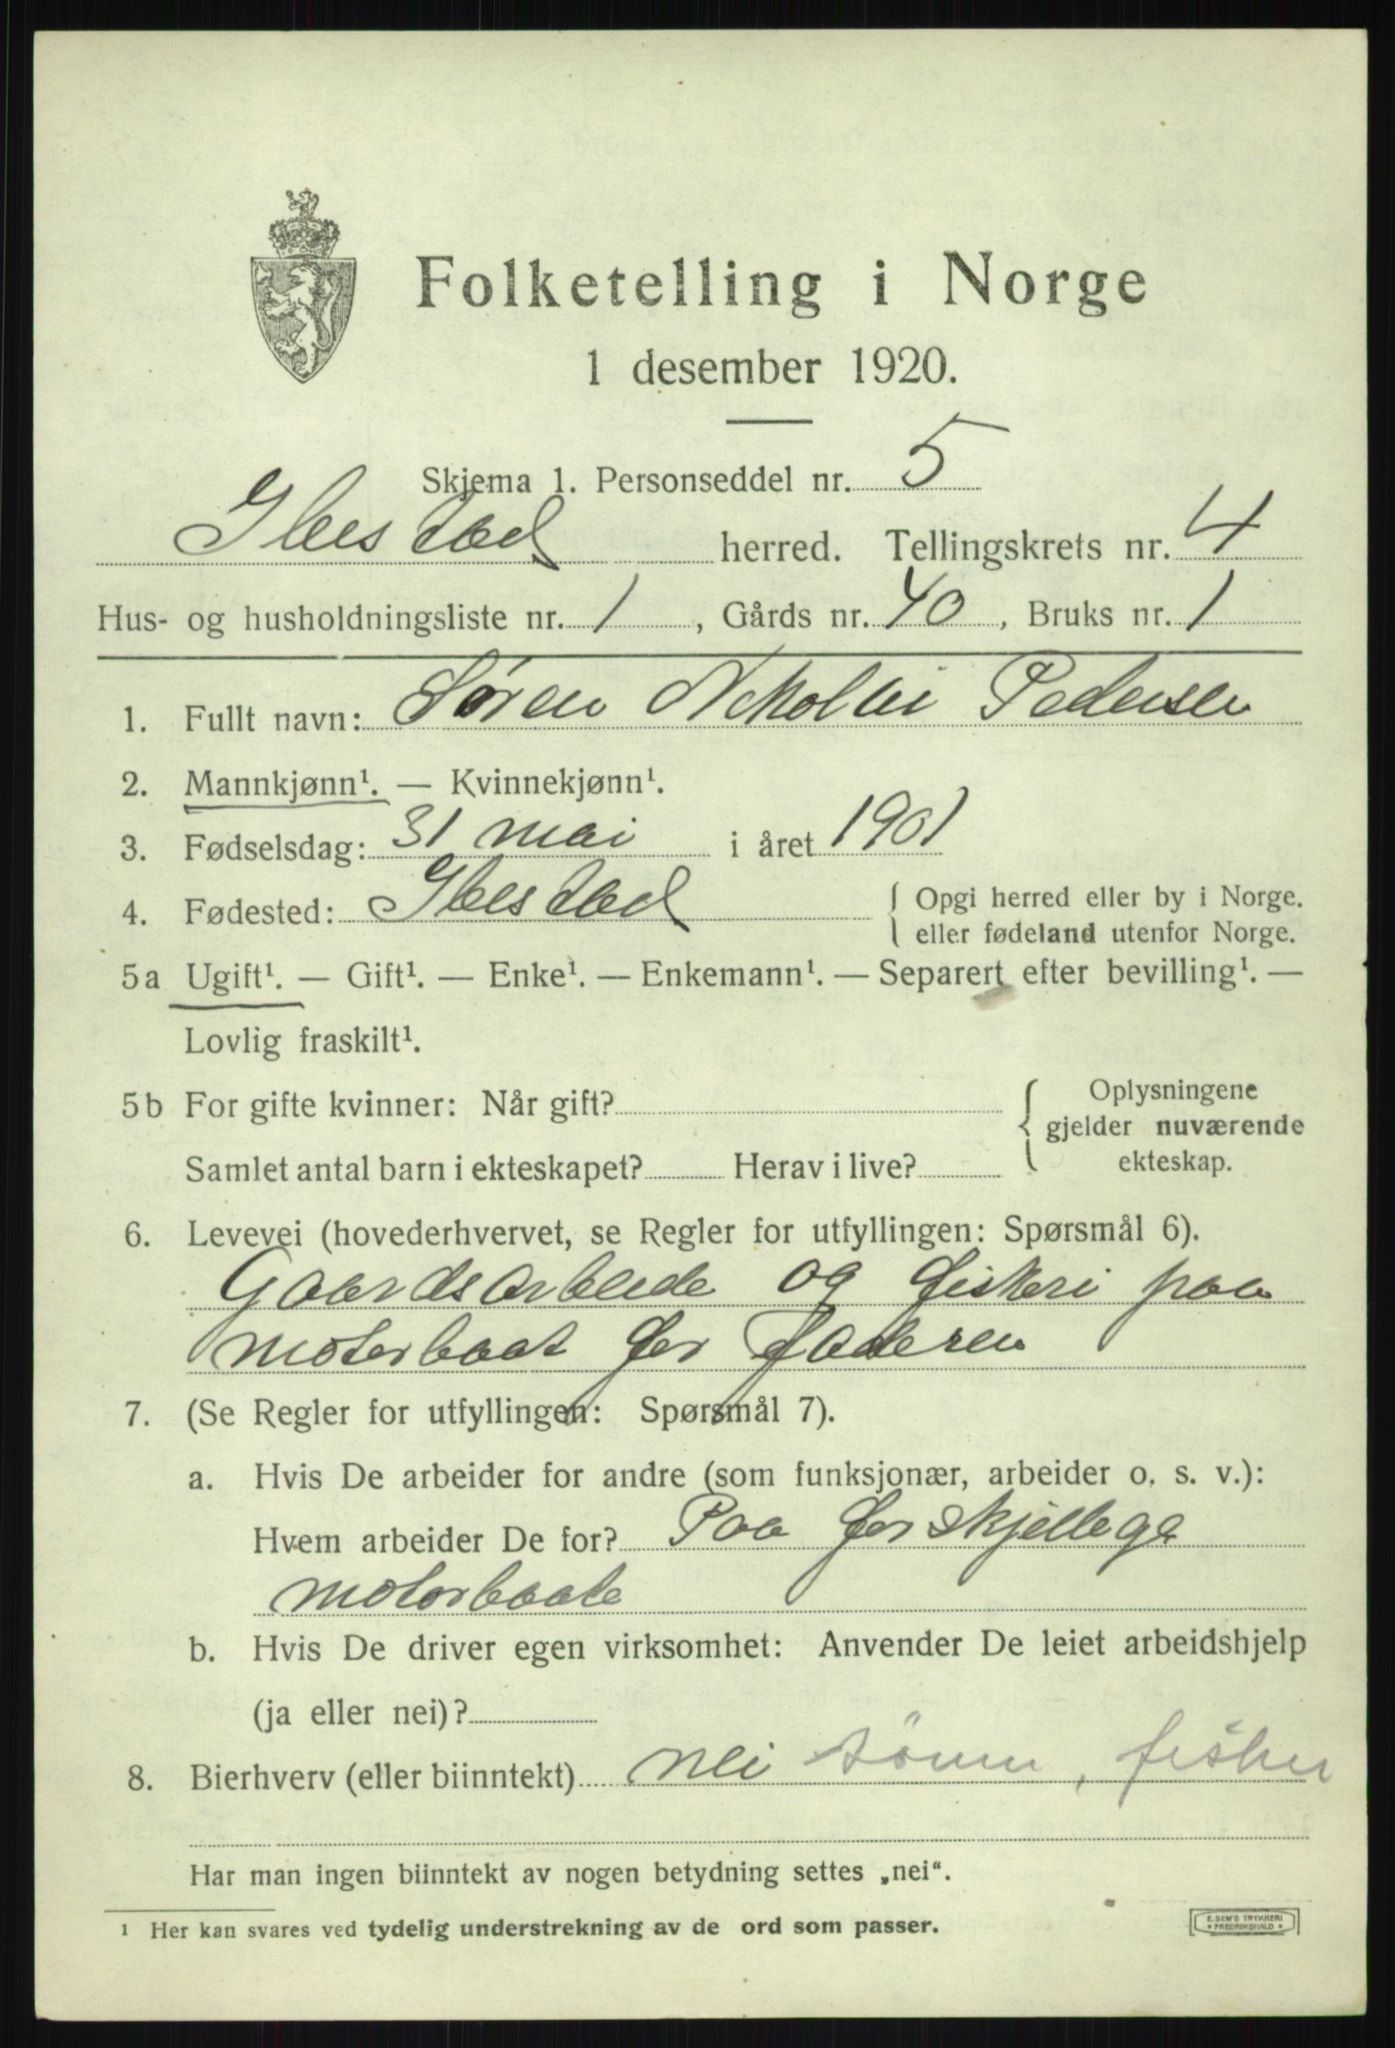 Folketelling i Norge
1 desember 1920.
Skjema 1. Personseddel nr. 5
Ibestad herred. Tellingskrets nr. 4
Hus- og husholdningsliste nr. 1, Gårds nr. 40, Bruks nr. 1
1. Fullt navn: Søren Nikolai Pedersen
2. Mannkjønn¹. — Kvinnekjønn¹.
3. Fødselsdag: 31 mai i året 1901
4. Fødested: Ibestad { Opgi herred eller by i Norge.
eller fødeland utenfor Norge.
5a Ugift¹. — Gift¹. — Enke¹. — Enkemann¹. — Separert efter bevilling¹. —
Lovlig fraskilt¹.
5b For gifte kvinner: Når gift? { Oplysningene
gjelder nuværende
Samlet antal barn i ekteskapet? Herav i live? ekteskap.
6. Levevei (hovederhvervet, se Regler for utfyllingen: Spørsmål 6).
Gaardsarbeide og fiskeri paa
motorbaat for faderen
7. (Se Regler for utfyllingen: Spørsmål 7).
a. Hvis De arbeider for andre (som funksjonær, arbeider o. s. v.):
Hvem arbeider De for? Paa forskjellege
motorbaate
b. Hvis De driver egen virksomhet: Anvender De leiet arbeidshjelp
(ja eller nei)?
8. Bierhverv (eller biinntekt) nei sønn, fisker
Har man ingen biinntekt av nogen betydning settes „nei“.
¹ Her kan svares ved tydelig understrekning av de ord som passer.
E. SEM'S TRYKKERI
FREDRIKSHALD